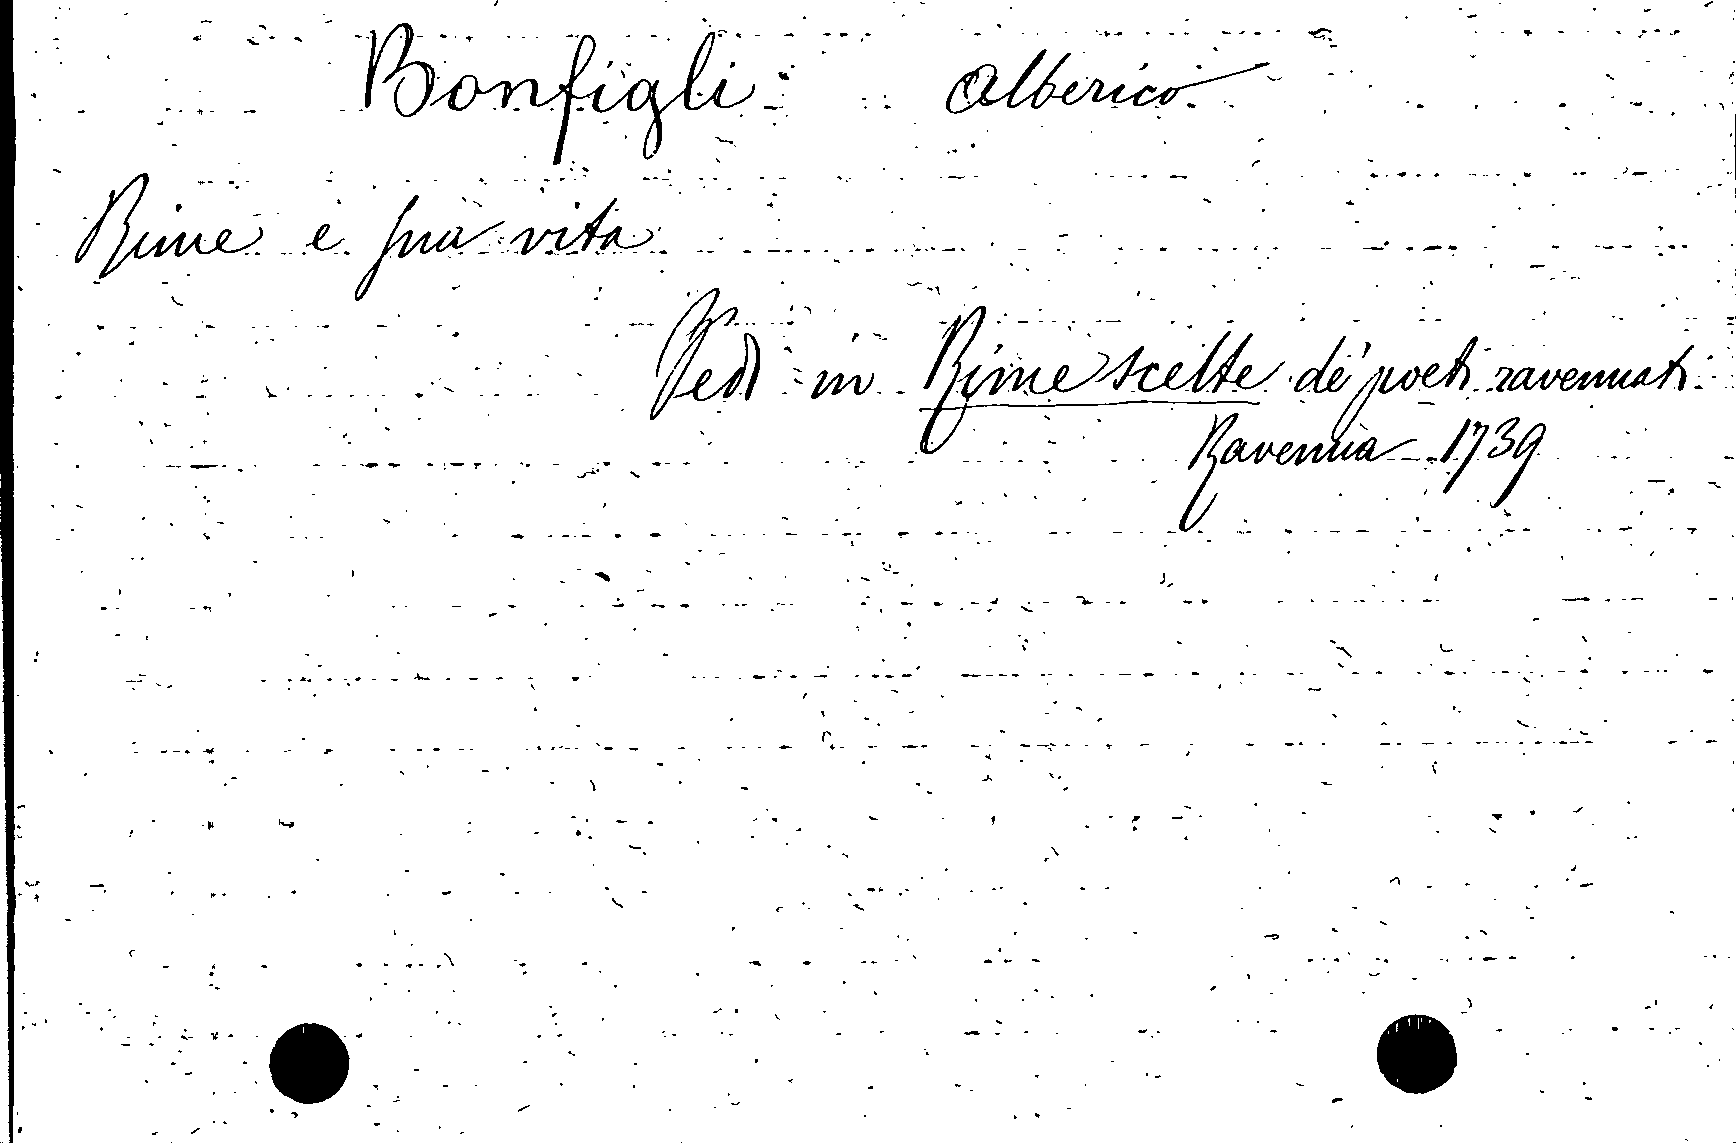 Bonfigli Alberico
Rime e sua vita
Vedi in Rime scelte de' poeti ravennati
Ravenna 1739